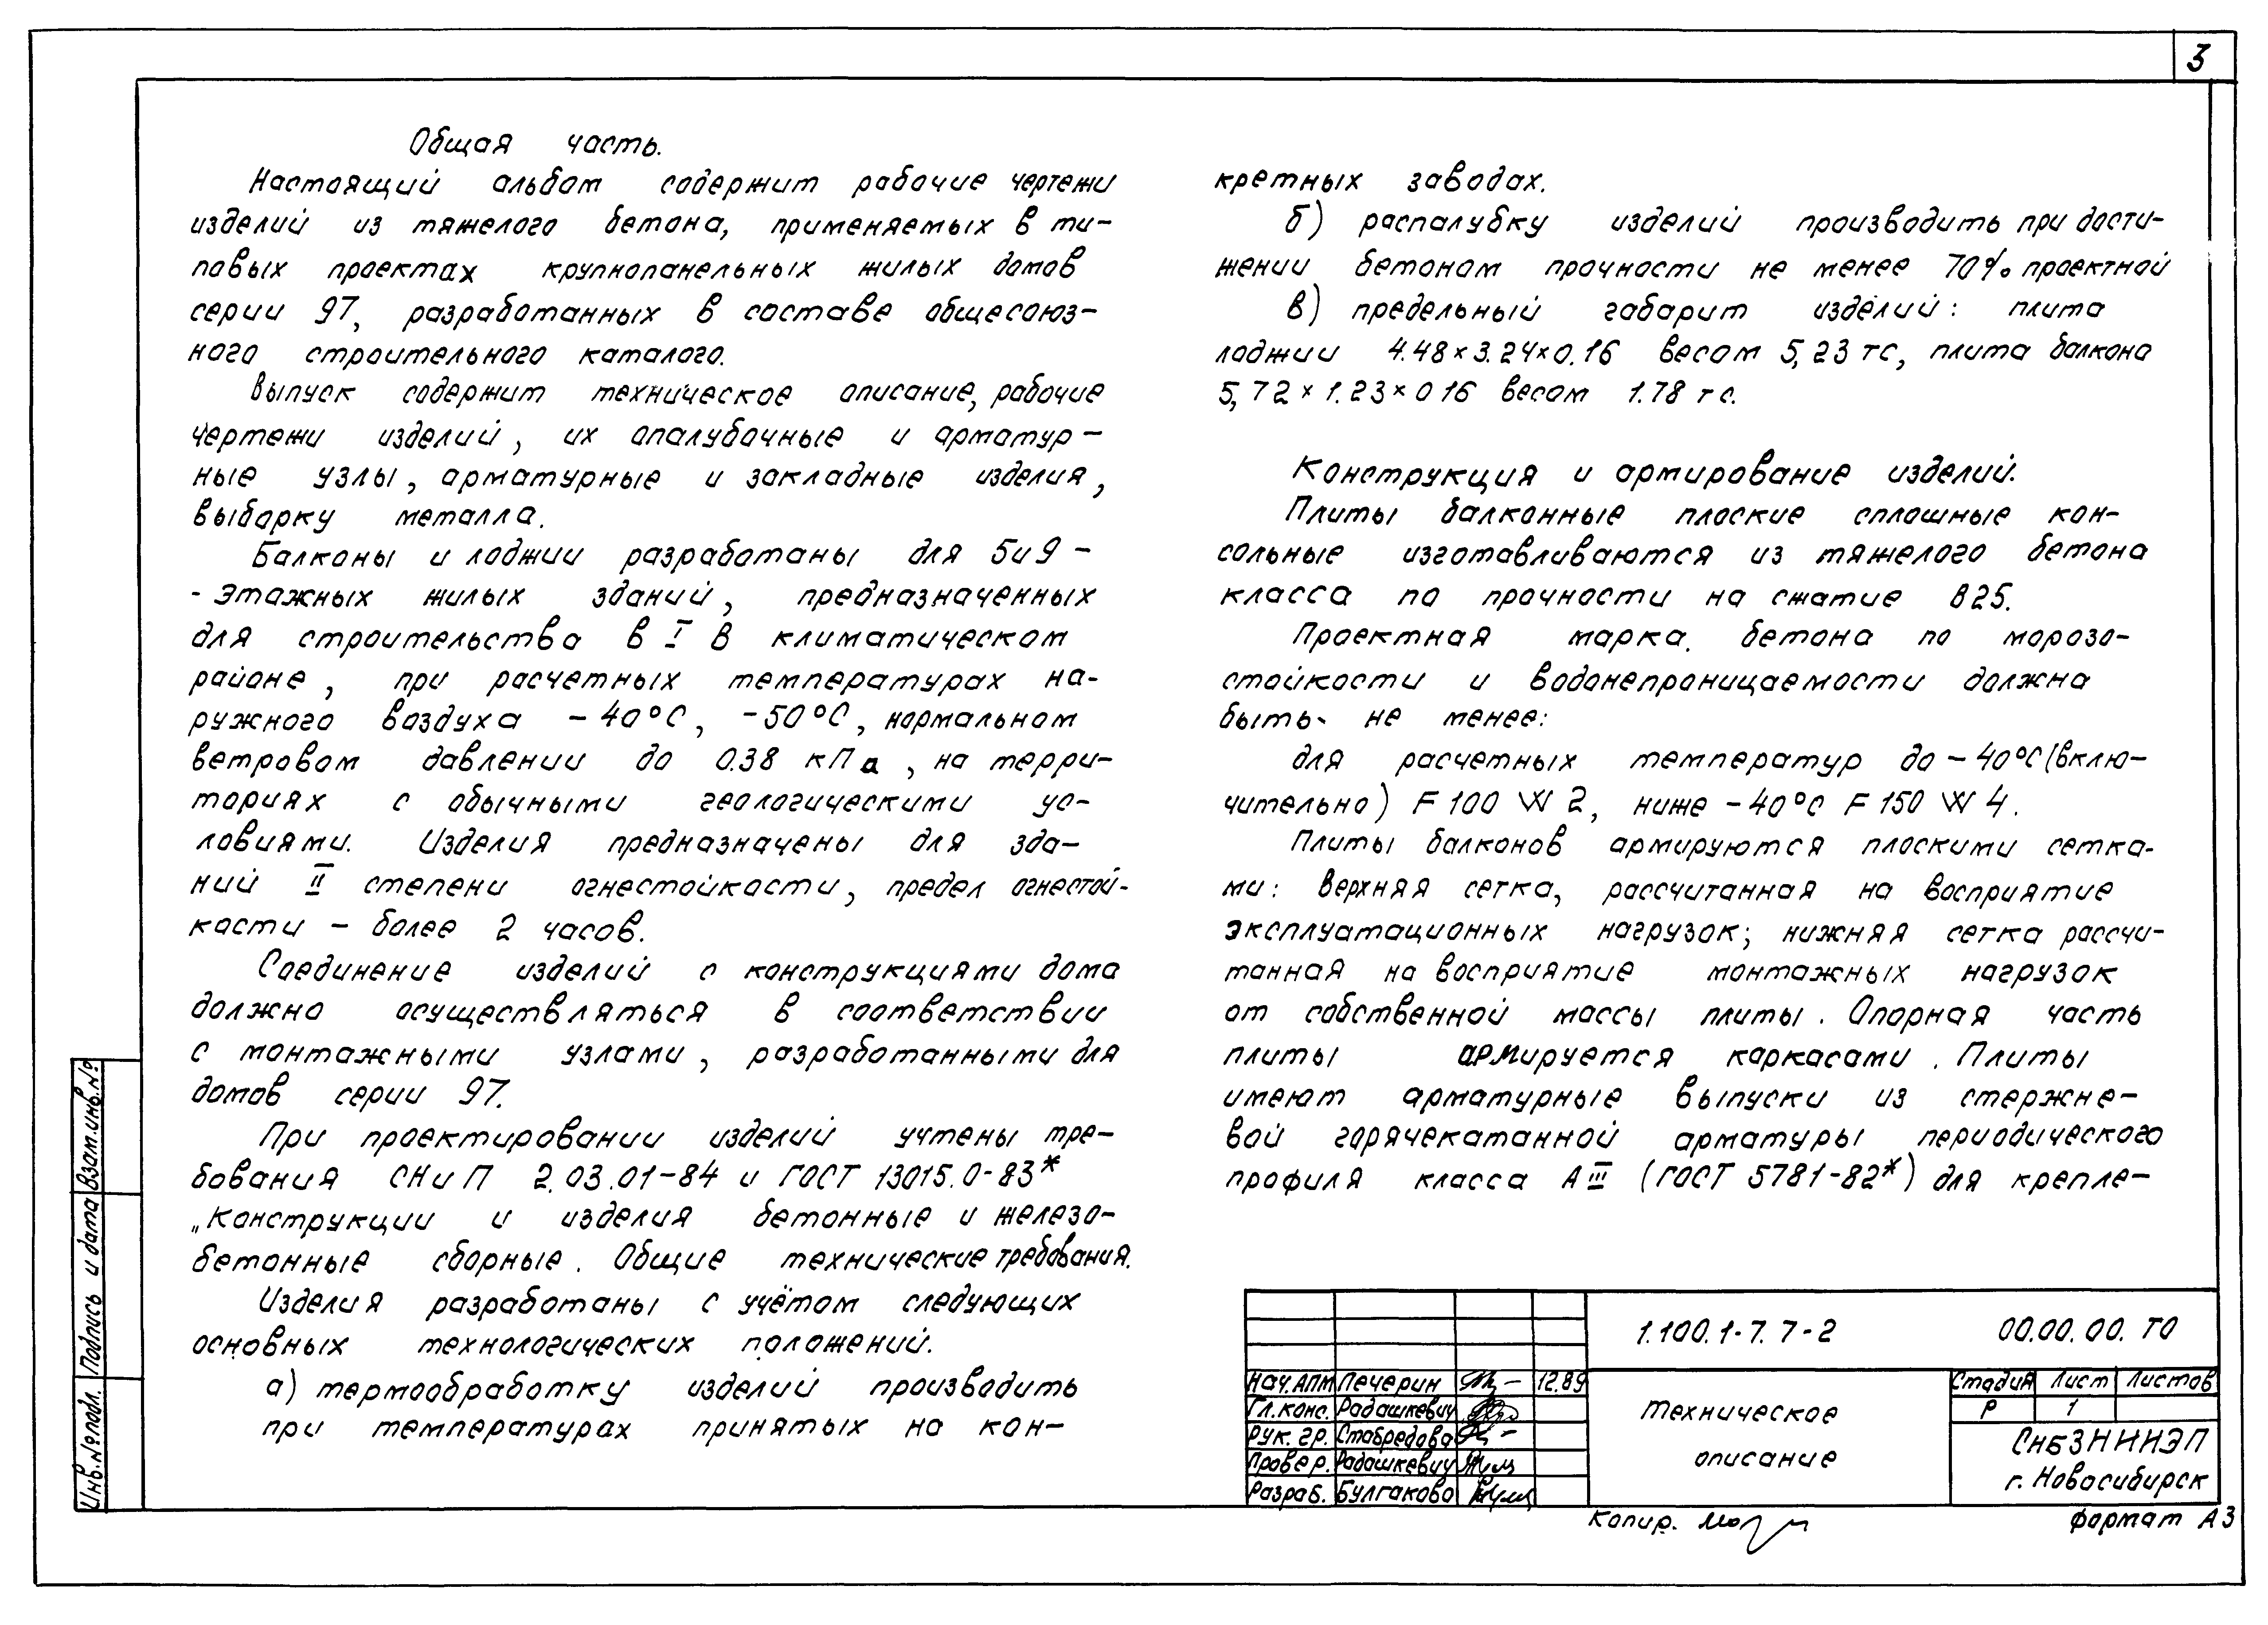 3
Общая часть.
Настоящий альбом содержит рабочие чертежи
изделий из тяжелого бетона, применяемых в ти-
повых проектах крупнопанельных жилых домов
серии 97, разработанных в составе общесоюз-
ного строительного каталога.
Выпуск содержит техническое описание, рабочие
чертежи изделий, их опалубочные и арматур-
ные узлы, арматурные и закладные изделия,
выборку металла.
Балконы и лоджии разработаны для 5и9-
-этажных жилых зданий, предназначенных
для строительства в I В климатическом
районе, при расчетных температурах на-
ружного воздуха -40°С, -50°С, нормальном
ветровом давлении до 0.38 кПа, на терри-
ториях с обычными геологическими ус-
ловиями. Изделия предназначены для зда-
ний II степени огнестойкости, предел огнестой-
кости - более 2 часов.
Соединение изделий с конструкциями дома
должно осуществляться в соответствии
с монтажными узлами, разработанными для
домов серии 97.
При проектировании изделий учтены тре-
бования СНиП 2.03.01-84 и ГОСТ 13015.0-83*
„Конструкции и изделия бетонные и железо-
бетонные сборные. Общие технические требования.
Изделия разработаны с учётом следующих
основных технологических положений.
а) термообработку изделий производить
при температурах принятых на кон-
кретных заводах.
б) распалубку изделий производить при дости-
жении бетоном прочности не менее 70% проектной
в) предельный габарит изделий: плита
лоджии 4.48×3.24×0.16 весом 5,23 тс, плита балкона
5,72×1.23×0 16 весом 1.78 тс.
Конструкция и армирование изделий.
Плиты балконные плоские сплошные кон-
сольные изготавливаются из тяжелого бетона
класса по прочности на сжатие В25.
Проектная марка бетона по морозо-
стойкости и водонепроницаемости должна
быть не менее:
для расчетных температур до -40°С (вклю-
чительно) F 100 W 2, ниже -40°С F 150 W 4.
Плиты балконов армируются плоскими сетка-
ми: верхняя сетка, рассчитанная на восприятие
эксплуатационных нагрузок; нижняя сетка рассчи-
танная на восприятие монтажных нагрузок
от собственной массы плиты. Опорная часть
плиты армируется каркасами. Плиты
имеют арматурные выпуски из стержне-
вой горячекатанной арматуры периодического
профиля класса А III (ГОСТ 5781-82*) для крепле-
1.100.1-7.7-2 00.00.00.ТО
Нач.АПМ Печерин 12.89
Гл.конс. Радашкевич
Рук.гр. Стабредова
Провер. Радашкевич
Разраб. Булгакова
Техническое
описание
Стадия Лист Листов
Р 1
СибЗНИИЭП
г. Новосибирск
Копир.
формат А3
Инв.№подл. Подпись и дата Взам.инв.№